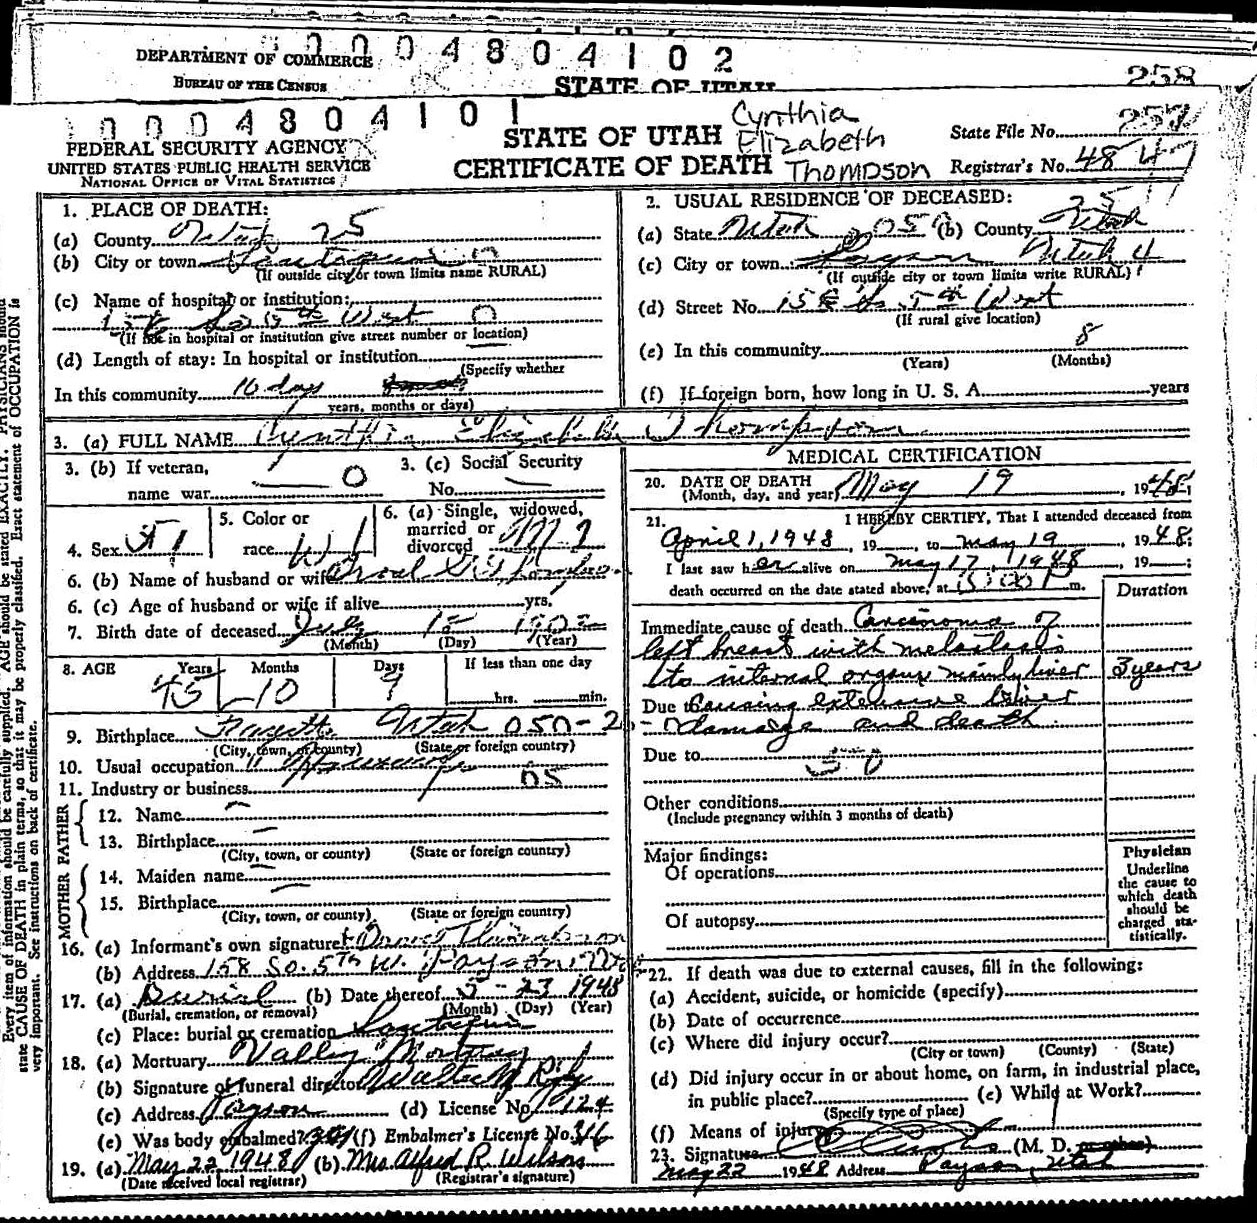 0004804102
DEPARTMENT OF COMMERCE
BUREAU OF THE CENSUS
STATE OF UTAH
258
0004804101
FEDERAL SECURITY AGENCY
UNITED STATES PUBLIC HEALTH SERVICE
NATIONAL OFFICE OF VITAL STATISTICS
STATE OF UTAH
CERTIFICATE OF DEATH
Cynthia
Elizabeth
Thompson
State File No. 257
Registrar's No. 48 47
1. PLACE OF DEATH:
(a) County Utah 25
(b) City or town Santaquin
(If outside city or town limits name RURAL)
(c) Name of hospital or institution:
158 So 5th West
(If not in hospital or institution give street number or location)
(d) Length of stay: In hospital or institution
(Specify whether
In this community 10 days
years, months or days)
2. USUAL RESIDENCE OF DECEASED:
(a) State Utah (b) County Utah
(c) City or town Payson Utah 4
(If outside city or town limits write RURAL)
(d) Street No. 158 So 5th West
(If rural give location)
(e) In this community 8
(Years) (Months)
(f) If foreign born, how long in U. S. A. years
3. (a) FULL NAME Cynthia Elizabeth Thompson
3. (b) If veteran, name war 0
3. (c) Social Security No.
4. Sex F 1
5. Color or race W 1
6. (a) Single, widowed, married or divorced M
6. (b) Name of husband or wife Thompson
6. (c) Age of husband or wife if alive yrs.
7. Birth date of deceased July
(Month) (Day) (Year)
8. AGE Years Months Days If less than one day
45 10
hrs. min.
9. Birthplace Utah 050-2
(City, town, or county) (State or foreign country)
10. Usual occupation Housewife
11. Industry or business
FATHER
12. Name
13. Birthplace
(City, town, or county) (State or foreign country)
MOTHER
14. Maiden name
15. Birthplace
(City, town, or county) (State or foreign country)
16. (a) Informant's own signature Thompson
(b) Address 158 So. 5th W. Payson
17. (a) Burial (b) Date thereof 5-23 1948
(Burial, cremation, or removal) (Month) (Day) (Year)
(c) Place: burial or cremation Santaquin
18. (a) Mortuary Valley Mortuary
(b) Signature of funeral director
(c) Address Payson (d) License No. 124
(e) Was body embalmed? (f) Embalmer's License No. 316
19. (a) May 22 1948 (b) Mrs Alfred R. Wilson
(Date received local registrar) (Registrar's signature)
MEDICAL CERTIFICATION
20. DATE OF DEATH
(Month, day, and year) May 19, 1948;
21. I HEREBY CERTIFY, That I attended deceased from
April 1, 1948, 19 , to May 19 1948;
I last saw her alive on May 17, 1948, 19 ;
death occurred on the date stated above, at m.
Duration
Immediate cause of death Carcinoma of
left breast with metastasis
to internal organs mainly liver 3 years
Due to causing extensive liver
damage and death
Due to 50
Other conditions
(Include pregnancy within 3 months of death)
Major findings:
Of operations
Of autopsy
Physician
Underline
the cause to
which death
should be
charged sta-
tistically.
22. If death was due to external causes, fill in the following:
(a) Accident, suicide, or homicide (specify)
(b) Date of occurrence
(c) Where did injury occur?
(City or town) (County) (State)
(d) Did injury occur in or about home, on farm, in industrial place,
in public place? (e) While at Work?
(Specify type of place)
(f) Means of injury
23. Signature (M. D. or other)
May 22 1948 Address Payson, Utah
Every item of information should be carefully supplied. AGE should be stated EXACTLY. PHYSICIANS should
state CAUSE OF DEATH in plain terms, so that it may be properly classified. Exact statement of OCCUPATION is
very important. See instructions on back of certificate.